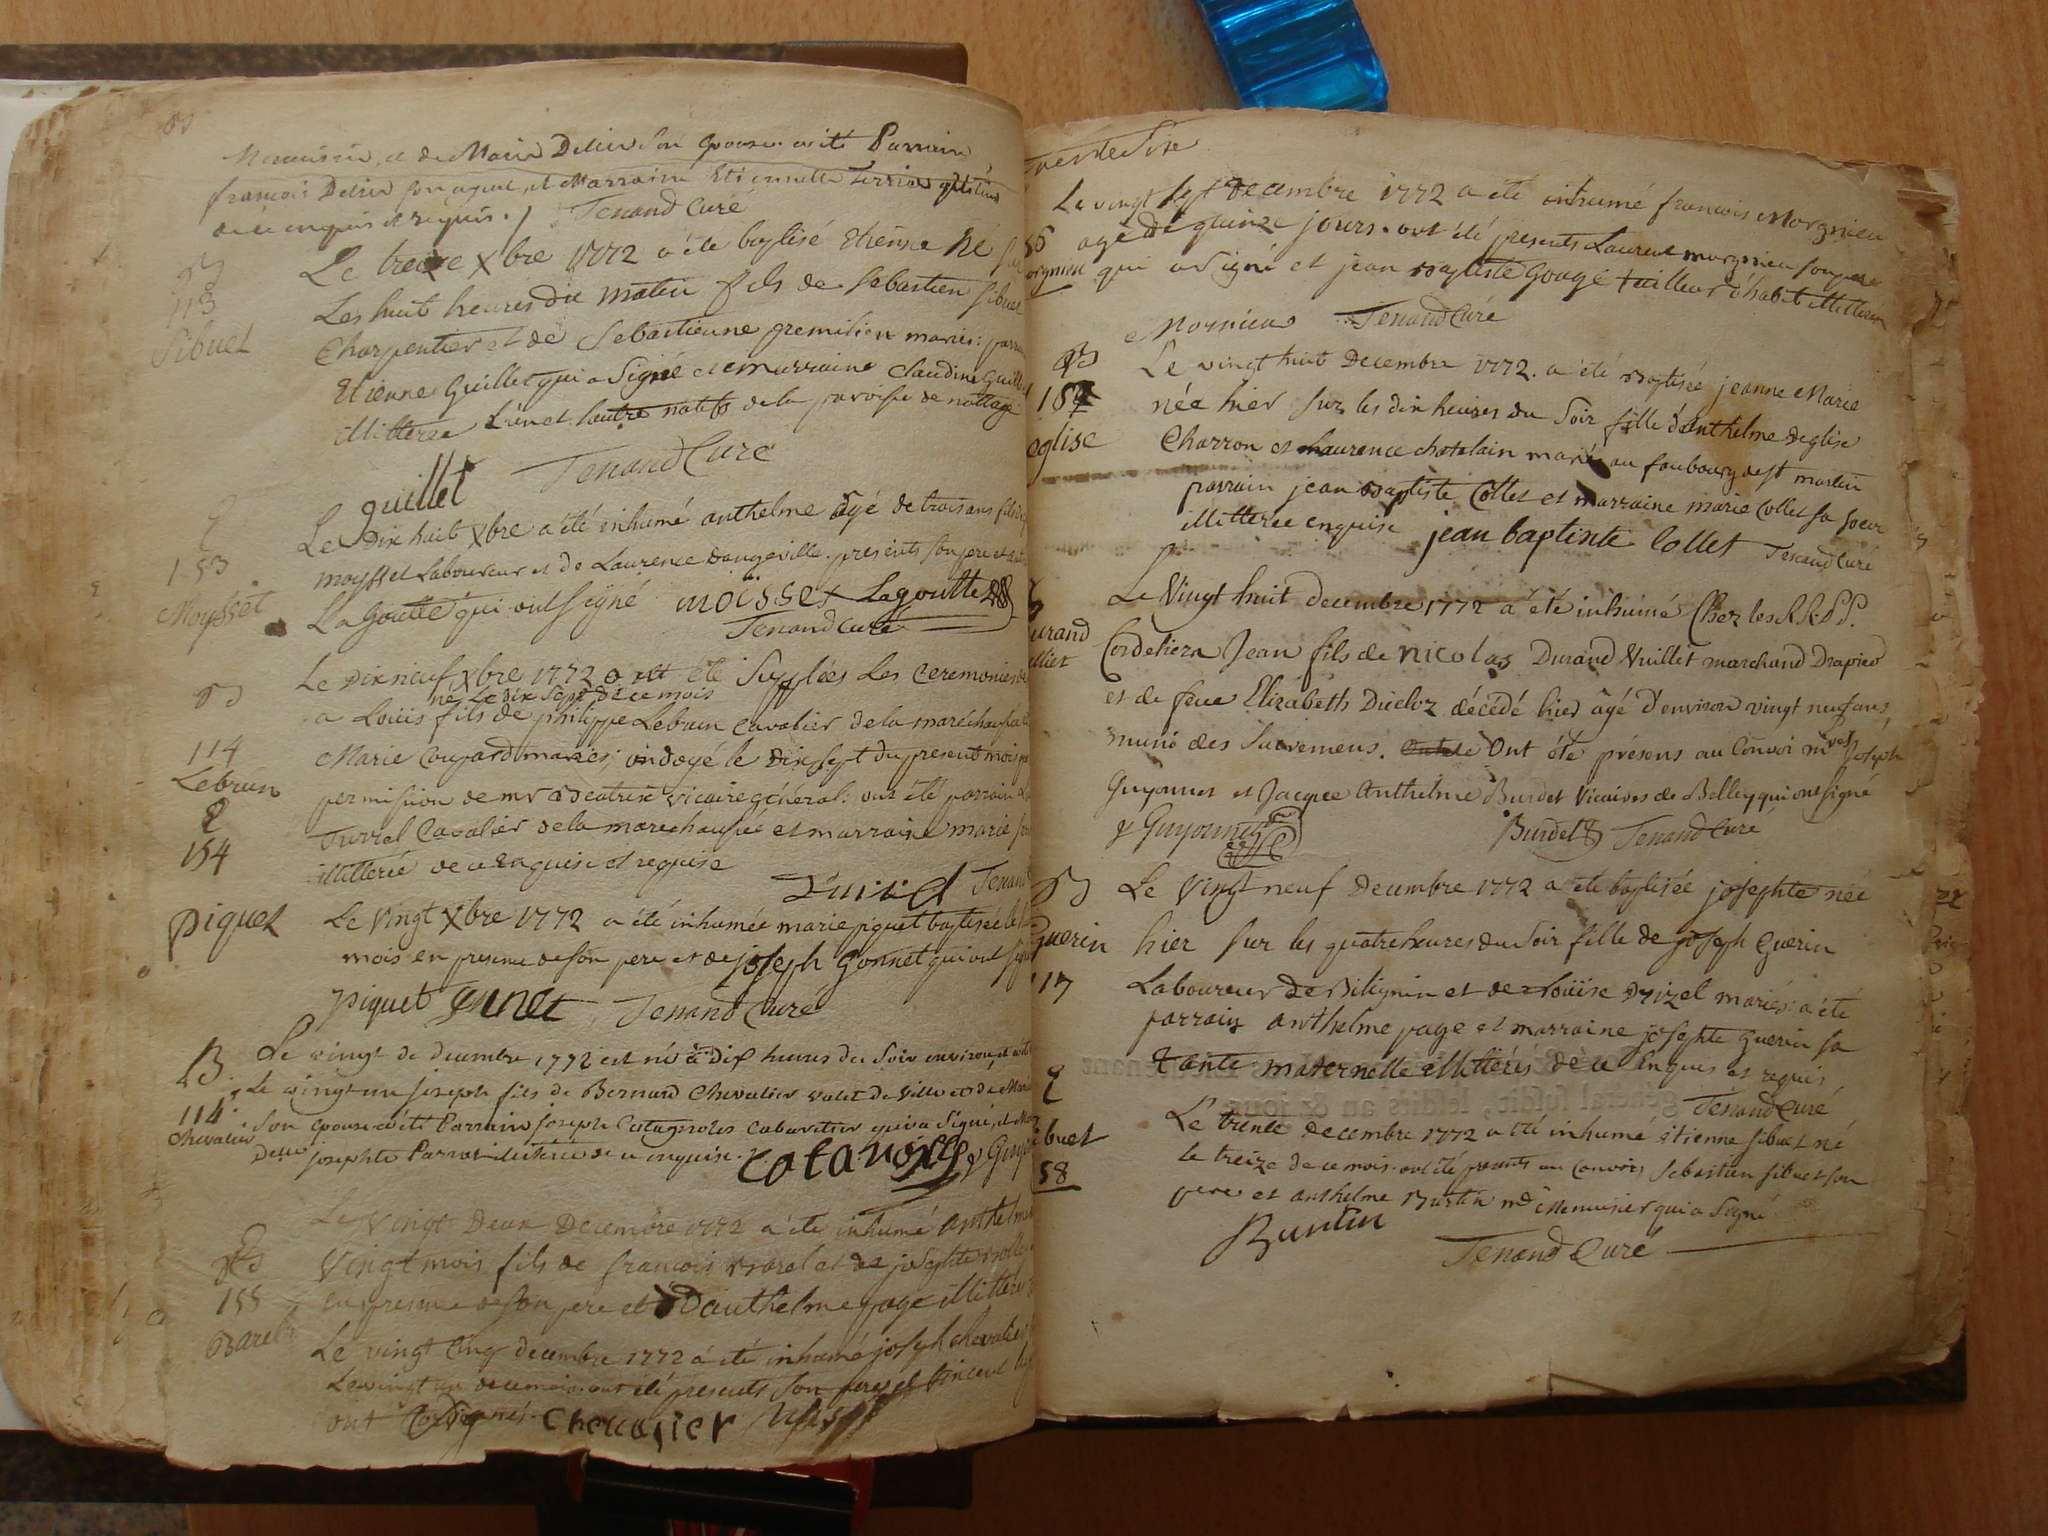 et de Marie Delier Son Epouse a été Parrain
francois Delier son ayeul, et Marraine Etiennette
de ce enquis et requis. / Tenand Curé
113
Sibuet
Le treize Xbre 1772 a été baptisé Etienne Né
Les huit heures du matin fils de Sebastien Sibuet
Charpentier et de Sebastienne gremilien mariés: parrain
Etienne Guillet qui a Signé et marraine Claudine Guillet
illitterée L'un et l'autre natifs de la paroisse de nattage
guillet Tenand Curé
153
Moysset
Le Dix huit Xbre a été inhumé anthelme âgé de trois ans fils de
moysset Laboureur et de Laurence Dangeville. presents son pere et
La Goutte qui ont signé moisset Lagoutte
Tenand Curé
114
Lebrun
Le Dix neuf Xbre 1772 ont été Supplées Les Ceremonies
né Le Dix Sept de ce mois
a Loüis fils de philippe Lebrun Cavalier de la maréchaussée
Marie Coujard mariés; ondoyé le Dix sept du present mois
permission de mr vicaire général: ont été parrain
Turrel Cavalier de la marechaussée et marraine marie
illitterée de ce Enquise et requise
Turrel Tenand
154
piquet
Le Vingt Xbre 1772 a été inhumée marie piquet baptisée le
mois en presence de son pere et de joseph Gonnet qui ont signé
piquet Tenand Curé
B
114
Chevalier
Le vingt de decembre 1772 est né a Dix heures du Soir environ, et a été
Le vingt un joseph fils de Bernard Chevalier valet de Ville et de Marie
Son epouse a été Parrain joseph Catagnoles Cabaretier qui a Signé, et Marraine
josephte Parrat illiterée de ce enquise.
155
Barel
Le Vingt Deux Decembre 1772 a été inhumé anthelme
Vingt mois fils de francois Barel et de josephte
en presence de son pere et D'anthelme page illitterés
Le vingt Cinq decembre 1772 a été inhumé joseph chevalier
Le vingt un de ce mois ont été presents Son pere et Vincent
ont Chevalier
Le vingt Sept Decembre 1772 a été inhumé francois Morgnieu
agé de quinze jours. ont été presents Laurent morgnieu son pere
qui a Signé et jean Baptiste Gouge tailleur d'habit illitteré
Mornieu Tenand Curé
Le vingt huit Decembre 1772. a été Baptisée jeanne Marie
née hier sur les dix heures du Soir fille d'anthelme Deglise
Charron et Laurence chatelain mariés au faubourg de st martin
parrain jean Baptiste Collet et marraine marie Collet sa soeur
illitterée enquise jean baptiste Collet Tenand Curé
Le Vingt huit decembre 1772 a été inhumé Chez les RR. PP.
Cordeliers Jean fils de nicolas Durand Vuillet marchand Drapier
et de feue Elizabeth Ducloz décédé hier âgé d'environ vingt neuf ans,
muni des Sacremens. Ont été présens au Convoi mres Joseph
Guyonnet et Jacque Anthelme Burdet Vicaires de Belley qui ont signé
Guyonnet Burdet Tenand Curé
Guerin
117
Le Vingt neuf Decembre 1772 a été baptisée josephte née
hier sur les quatre heures du Soir fille de joseph Guerin
Laboureur de Billignin et de Loüise mariés: a été
parrain anthelme page et marraine josephte Guerin sa
Tante maternelle illitterés de ce Enquis et requis
Tenand Curé
58
Le trente decembre 1772 a été inhumé étienne Sibuet né
le treize de ce mois. ont été presents au Convoi Sebastien Sibuet son
pere et anthelme Burtin md Menuisier qui a Signé
Burtin
Tenand Curé